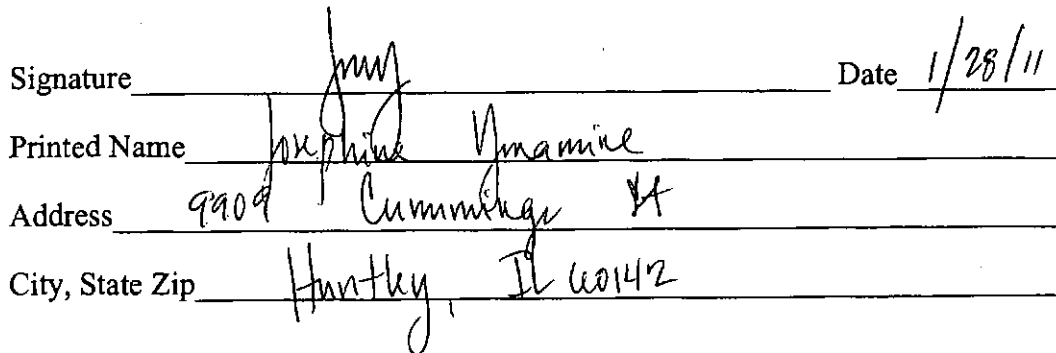 Signature Date 1/28/11
Printed Name Josephine Ymamine
Address 9909 Cummings St
City, State Zip Huntley, IL 60142